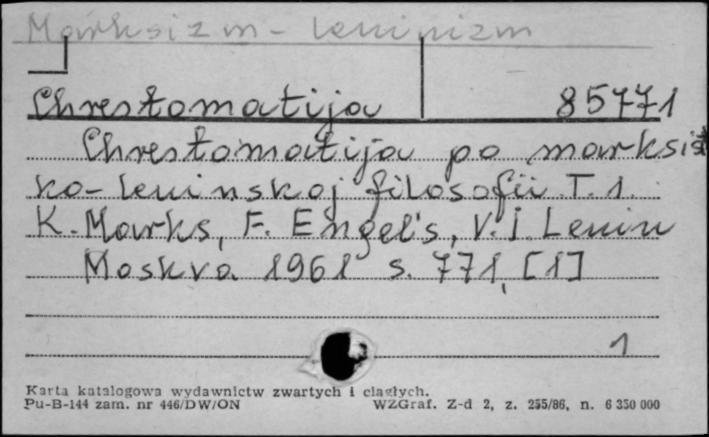 Marksizm - leninizm
Chrestomatija 85771
Chrestomatija po marksist
ko-leninskoj filosofii T. 1.
K. Marks, F. Engel's, V. I. Lenin
Moskva 1961 s. 771, [1]
1
Karta katalogowa wydawnictw zwartych i ciągłych.
Pu-B-144 zam. nr 446/DW/ON WZGraf. Z-d 2, z. 255/86, n. 6 350 000